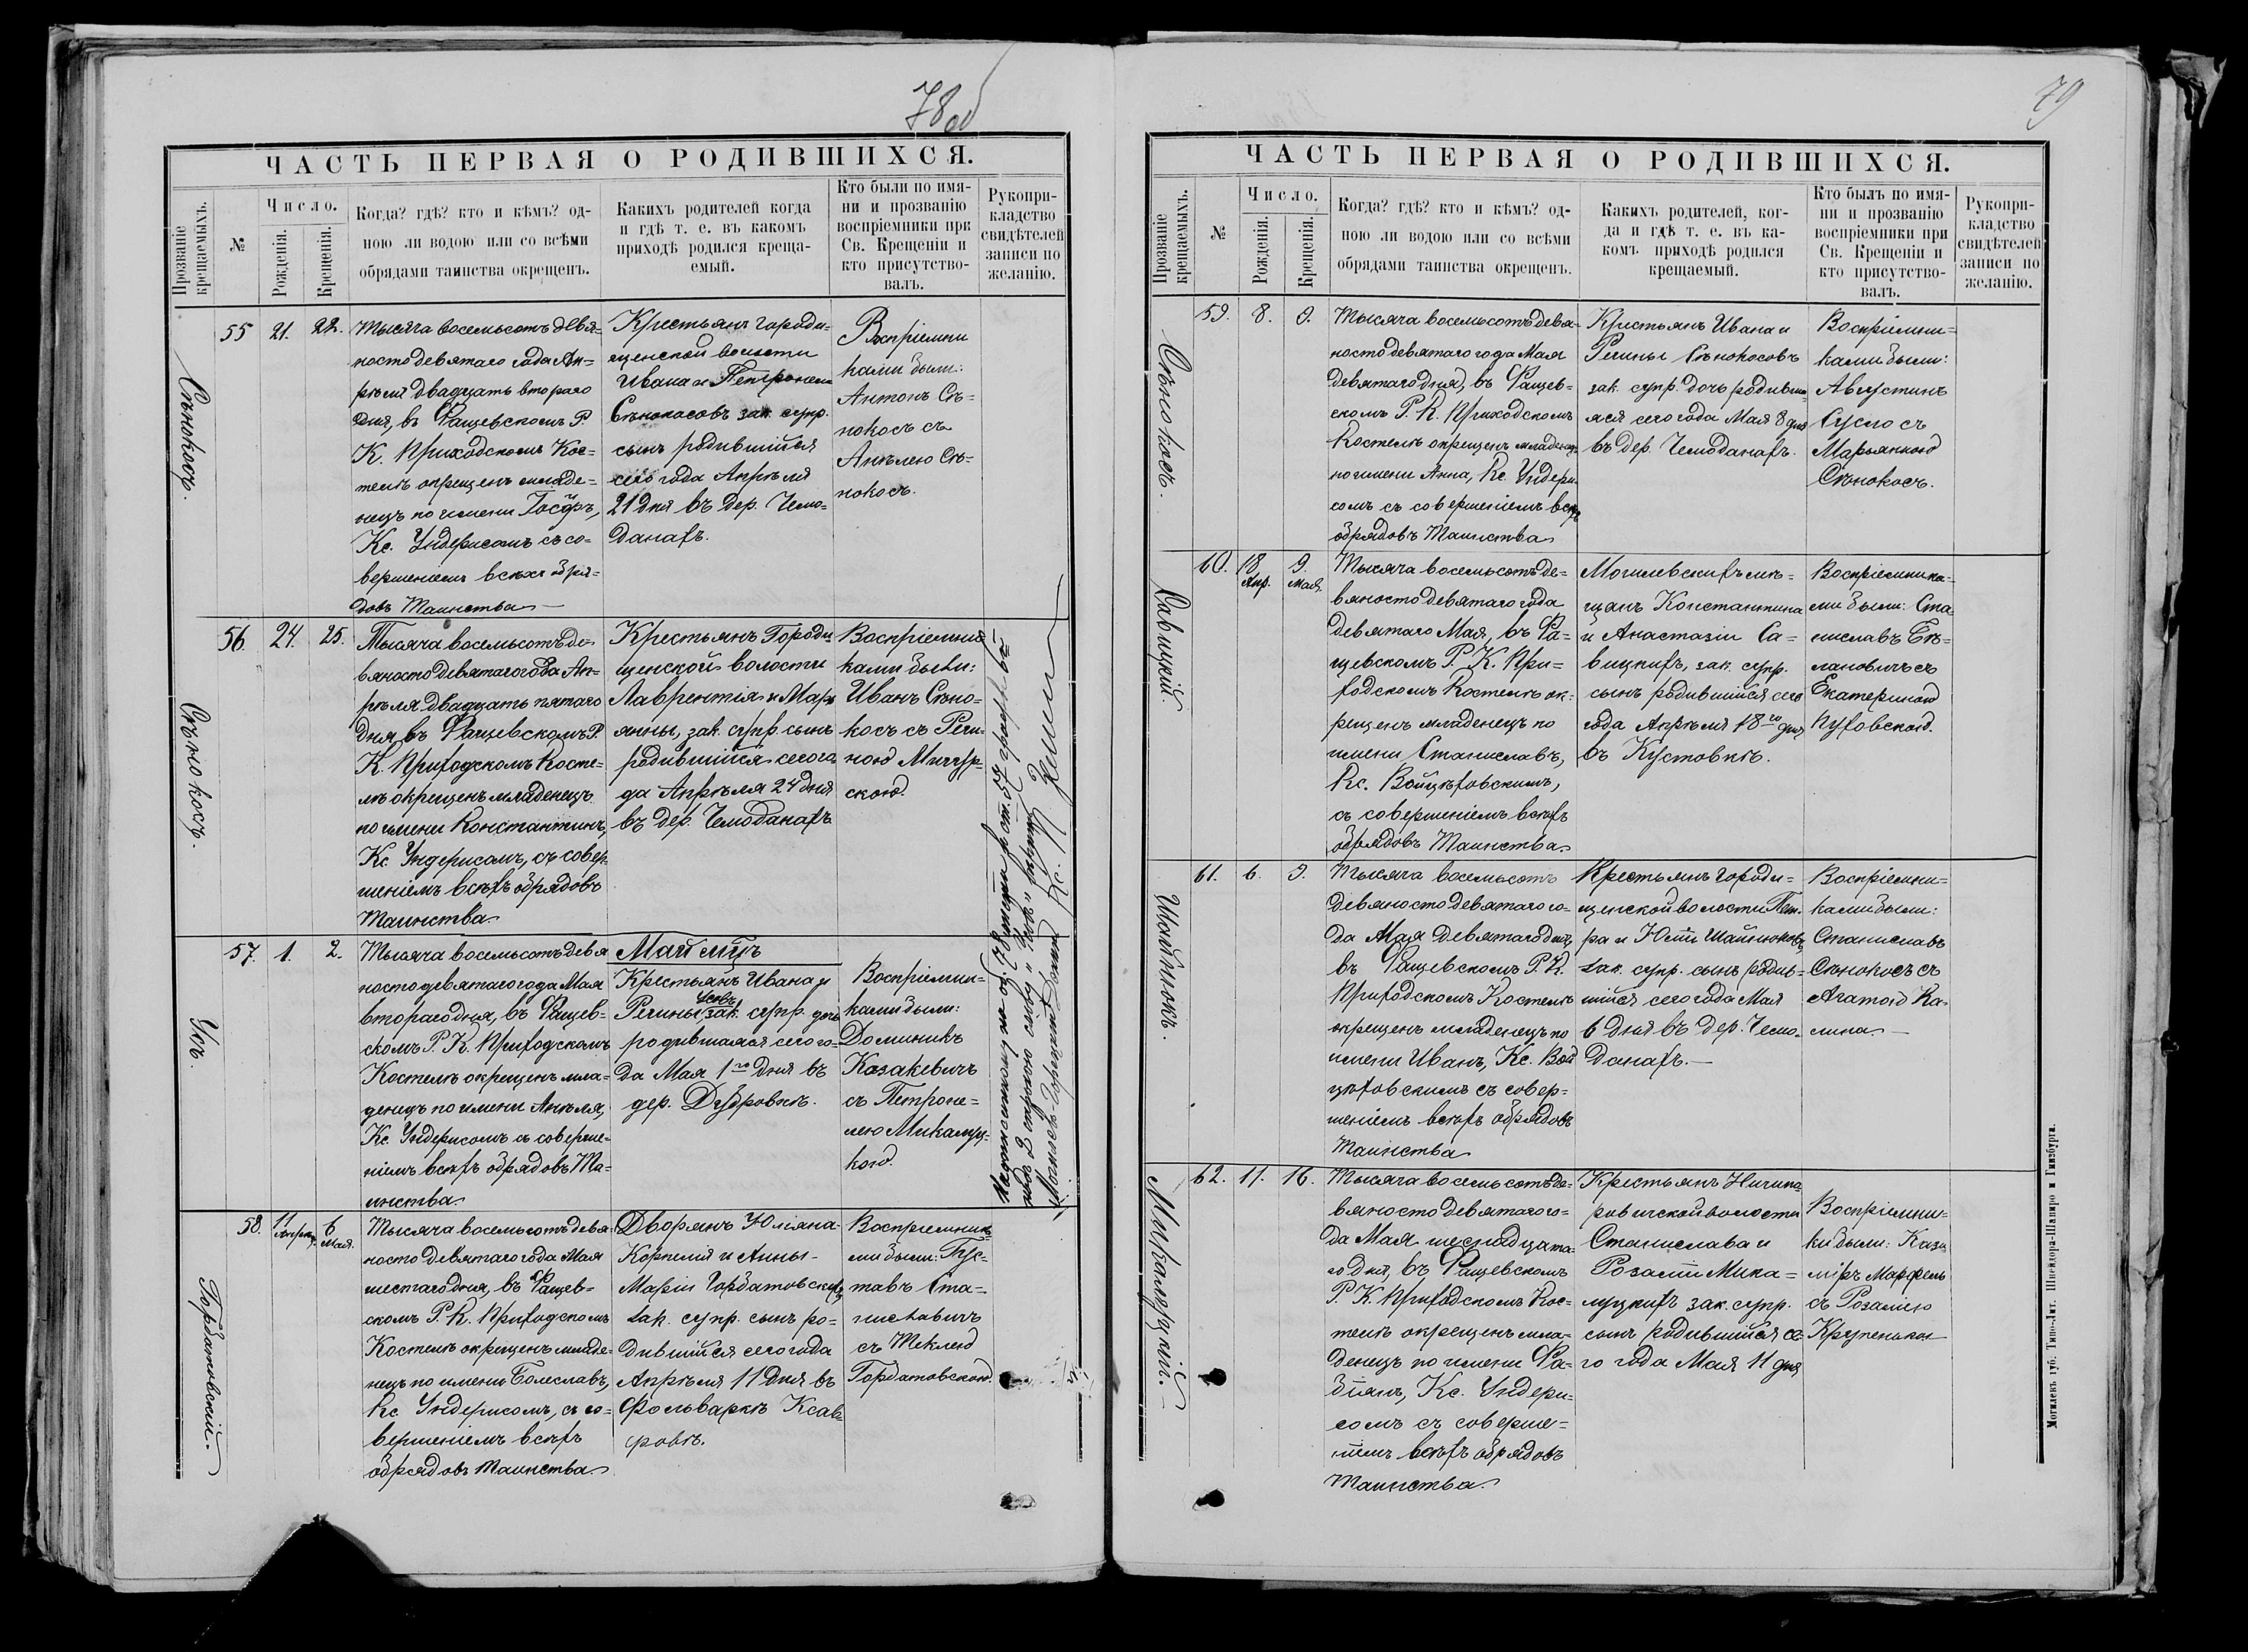 78об
ЧАСТЬ ПЕРВАЯ О РОДИВШИХСЯ.
Прозваніе крещаемыхъ.
№
Число.
Рожденія.
Крещенія.
Когда? гдѣ? кто и кѣмъ? од-
ною ли водою или со всѣми
обрядами таинства окрещенъ.
Какихъ родителей когда
и гдѣ т. е. въ какомъ
приходѣ родился креща-
емый.
Кто были по имя-
ни и прозванію
воспріемники при
Св. Крещеніи и
кто присутство-
валъ.
Рукопри-
кладство
свидѣтелей
записи по
желанію.
Сѣнокосъ.
55
21.
22.
Тысяча восемьсотъ девя-
носто девятаго года Ап-
рѣля двадцать втораго
дня, въ Фащевскомъ Р.
К. Приходскомъ Кос-
телѣ окрещенъ младе-
нецъ по имени Іосифъ,
Кс. Ундерисомъ съ со-
вершеніемъ всѣхъ обря-
довъ Таинства
Крестьянъ Городи-
щенской волости
Ивана и Петронели
Сѣнокосовъ зак. супр.
сынъ родившійся
сего года Апрѣля
21 дня въ дер. Чемо-
данахъ.
Воспріемни
ками были:
Антонъ Сѣ-
нокосъ съ
Анѣлею Сѣ-
нокосъ.
Сѣнокосъ.
56.
24.
25.
Тысяча восемьсотъ де-
вяносто девятаго года Ап-
рѣля двадцать пятаго
дня въ Фащевскомъ Р.
К. Приходскомъ Косте-
лѣ окрещенъ младенецъ
по имени Константинъ,
Кс Ундерисомъ, съ совер-
шеніемъ всѣхъ обрядовъ
Таинства
Крестьянъ Городи
щенской волости
Лаврентія и Марь
янны, зак. супр. сынъ
родившійся сего го
да Апрѣля 24 дня
въ дер. Чемоданахъ
Воспріемни
ками были:
Иванъ Сѣно-
косъ съ Реги-
ною
скою.
Усъ.
57.
1.
2.
Тысяча восемьсотъ девя
носто девятаго года Мая
втораго дня, въ Фащев-
скомъ Р. К. Приходскомъ
Костелѣ окрещенъ мла-
денецъ по имени Анѣля,
Кс. Ундерисомъ съ соверше-
ніемъ всѣхъ обрядовъ Та-
инства
Май мцъ
Крестьянъ Ивана и
Усовъ
Регины, зак. супр. дочь
родившаяся сего го-
да Мая 1го дня въ
дер. Дубровкѣ.
Воспріемни-
ками были:
Доминикъ
Козакевичъ
съ Петроне-
лею Микалуц-
кою.
Горбатовскій.
58.
11
Апрѣл.
6
Мая.
Тысяча восемьсотъ девя
носто девятаго года Мая
шестаго дня, въ Фащев-
скомъ Р. К. Приходскомъ
Костелѣ окрещенъ младе-
нецъ по имени Болеславъ,
Кс Ундерисомъ, съ со-
вершеніемъ всѣхъ
обрядовъ Таинства
Дворянъ Юліана-
Корнелія и Анны-
Маріи Горбатовскихъ
зак. супр. сынъ ро-
дившійся сего года
Апрѣля 11 дня въ
Фольваркѣ Ксаве
ровкѣ.
Воспріемника
ми были: Гус-
тавъ Ста-
ниславичъ
съ Теклею
Горбатовскою.
Надписанному на об. 78 листа ст. 57 графѣ
2 строкою слову "Усовъ" вѣрить
79
ЧАСТЬ ПЕРВАЯ О РОДИВШИХСЯ.
Прозваніе крещаемыхъ.
№
Число.
Рожденія.
Крещенія.
Когда? гдѣ? кто и кѣмъ? од-
ною ли водою или со всѣми
обрядами таинства окрещенъ.
Какихъ родителей, ког-
да и гдѣ т. е. въ ка-
комъ приходѣ родился
крещаемый.
Кто былъ по имя-
ни и прозванію
воспріемники при
Св. Крещеніи и
кто присутство-
валъ.
Рукопри-
кладство
свидѣтелей
записи по
желанію.
Сѣнокосъ.
59.
8.
9.
Тысяча восемьсотъ девя-
носто девятаго года Мая
девятаго дня, въ Фащев-
скомъ Р. К. Приходскомъ
Костелѣ окрещенъ младенецъ
по имени Анна, Кс. Ундери-
сомъ съ совершеніемъ всѣхъ
обрядовъ Таинства
Крестьянъ Ивана и
Регины Сѣнокосовъ
зак. супр. дочь родивша-
яся сего года Мая 8 дня
въ дер. Чемоданахъ.
Воспріемни-
ками были:
Августинъ
Сусло съ
Марьянною
Сѣнокосъ.
Савицкій.
60.
18
Апр.
9.
Мая.
Тысяча восемьсотъ де-
вяносто девятаго года
девятаго Мая, въ Фа-
щевскомъ Р. К. При-
ходскомъ Костелѣ ок-
рещенъ младенецъ по
имени Станиславъ,
Кс. Войцѣховскимъ,
съ совершеніемъ всѣхъ
обрядовъ Таинства
Могилевскихъ мѣ-
щанъ Константина
и Анастазіи Са-
вицкихъ, зак. супр.
сынъ родившійся сего
года Апрѣля 18го дня
въ Кустовкѣ.
Воспріемника-
ми были: Ста-
ниславъ
съ
Екатериною
Пуховскою.
Шайнюкъ.
61.
6.
9.
Тысяча восемьсотъ
девяносто девятаго го-
да Мая девятаго дня,
въ Фащевскомъ Р. К.
Приходскомъ Костелѣ
окрещенъ младенецъ по
имени Иванъ, Кс. Вой
цѣховскимъ съ совер-
шеніемъ всѣхъ обрядовъ
Таинства
Крестьянъ Городи-
щенской волости Пет-
ра и Юліи Шайнюковъ,
зак. супр. сынъ родив-
шійся сего года Мая
6 дня въ дер. Чемо-
данахъ.
Воспріемни-
ками были:
Станиславъ
Сѣнокосъ съ
Агатою Ка-
лина.
Микалуцкій.
62.
11.
16.
Тысяча восемьсотъ де-
вяносто девятаго го-
да Мая шеснадцата-
го дня, въ Фащевскомъ
Р. К. Приходскомъ Кос-
телѣ окрещенъ мла-
денецъ по имени Фа-
біянъ, Кс. Ундери-
сомъ съ соверше-
ніемъ всѣхъ обрядовъ
Таинства
Крестьянъ Ничипо-
ровичской волости
Станислава и
Розаліи Мика-
луцкихъ зак. супр.
сынъ родившійся се-
го года Мая 11 дня
Воспріемни-
ки были: Кази
міръ Марфель
съ Розаліею
Крупенька
Могилевъ губ. Типо-Лит. Шнейдора-Шапиро и Гинзбурга.